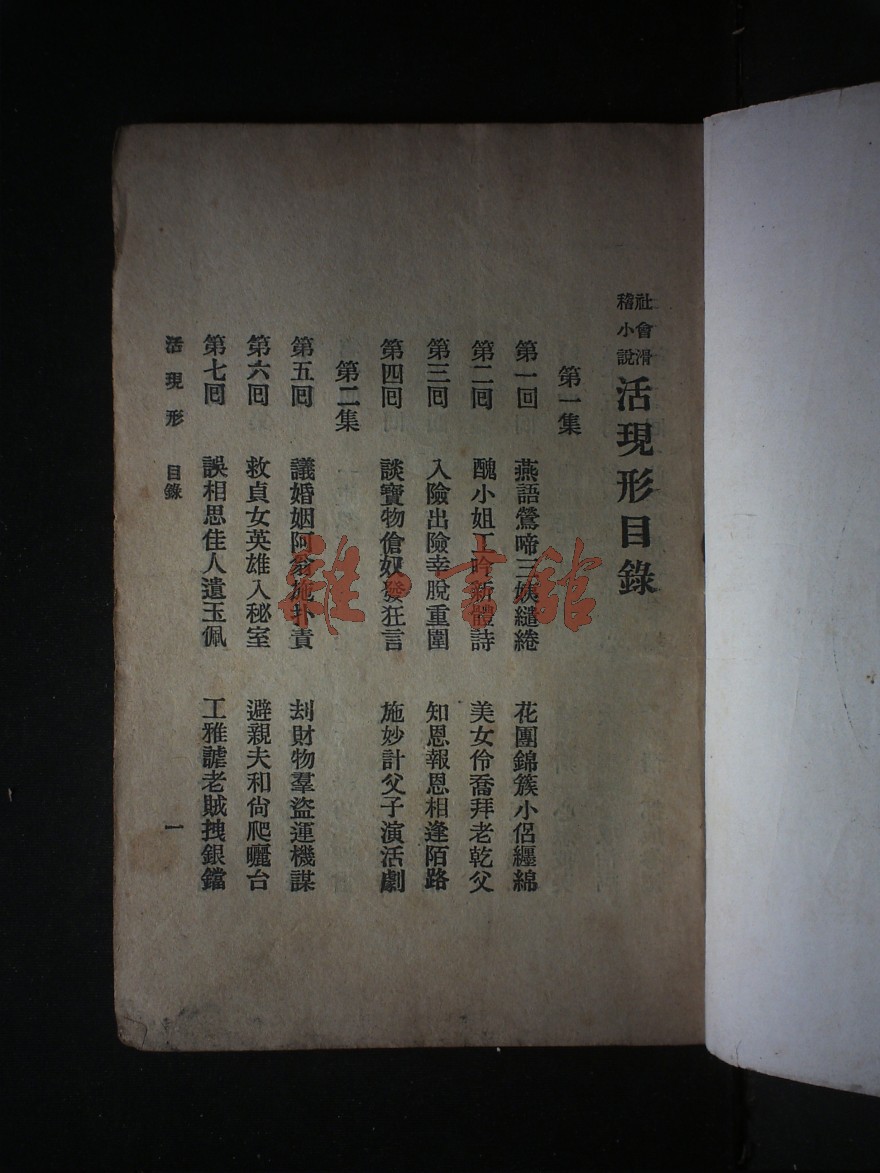 社會滑稽小說 活現形目錄
第一集
第一回 燕語鶯啼三姨繾綣 花團錦簇小侶纏綿
第二回 醜小姐工吟新體詩 美女伶喬拜老乾父
第三回 入險出險幸脫重圍 知恩報恩相逢陌路
第四回 談寶物傖奴發狂言 施妙計父子演活劇
第二集
第五回 議婚姻阿翁施扑責 刦財物羣盜運機謀
第六回 救貞女英雄入秘室 避親夫和尙爬曬台
第七回 誤相思佳人遺玉佩 工雅謔老賊拽銀鐺
活現形 目錄 一
雜·書館